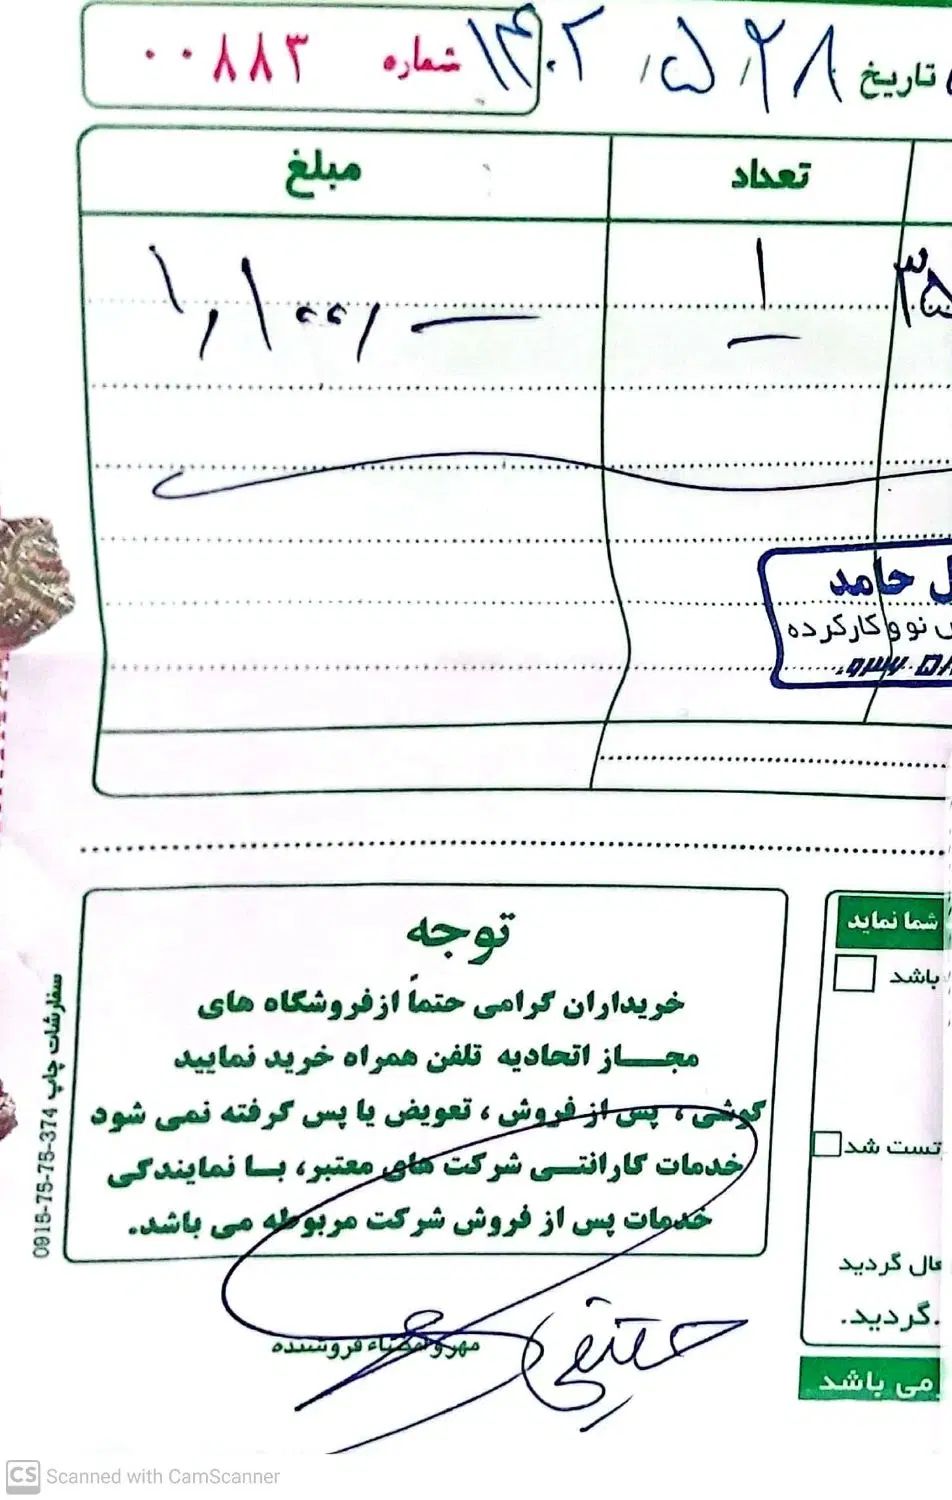 تاریخ ۱۴۰۲/۵/۲۸
شماره ۰۰۸۸۳
تعداد مبلغ
۱ ۱,۱۰۰,
حامد
نو و کارکرده
شما نماید
باشد
تست شد
گردید
گردید.
می باشد
توجه
خریداران گرامی حتماً ازفروشگاه های
مجـاز اتحادیه تلفن همراه خرید نمایید
گوشی ، پس از فروش ، تعویض یا پس گرفته نمی شود
خدمات گارانتـی شرکت های معتبر، بـا نمایندگی
خدمات پس از فروش شرکت مربوطه می باشد.
مهر و امضاء فروشنده
سفارشات چاپ 0915-75-75-374
CS Scanned with CamScanner